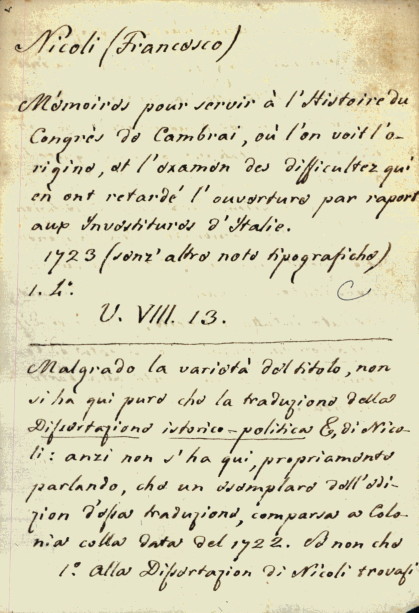 Nicoli (Francesco)
Mémoires pour servir à l'Histoire du
Congrés de Cambrai, où l'on voit l'o-
rigine, et l'examen des difficultez qui
en ont retardé l'ouverture par raport
aux Investitures d'Italie.
1723 (senz'altre note tipografiche)
1. 4º.
U. VIII. 13.
Malgrado la varietà del titolo, non
si ha qui pure che la traduzione della
Dissertazione istorico-politica &, di Nico-
li: anzi non s'ha qui, propriamente
parlando, che un esemplare dell'edi-
zion d'essa traduzione, comparsa a Colo-
nia colla data del 1722. Se non che
1.º alla Dissertazion di Nicoli trovasi